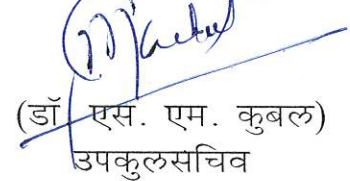 (डॉ एस. एम. कुबल)
उपकुलसचिव